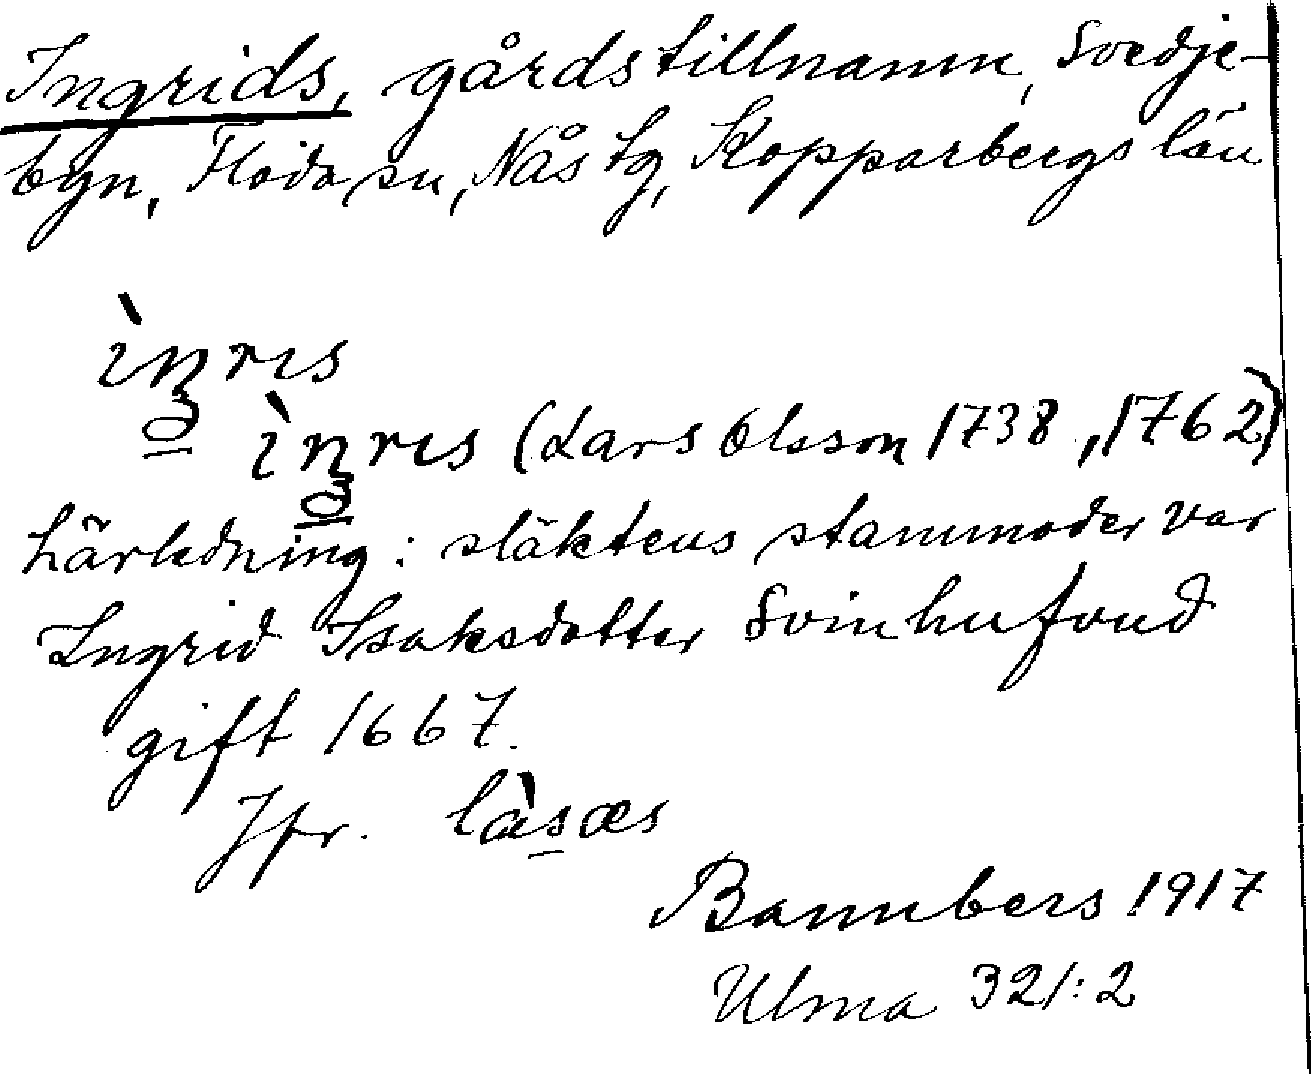 Ingrids, gårdstillnamn, Svedje-
byn, Floda sn, Nås tg, Kopparbergs län
ìŋrɩs
ìŋrɩs (Lars Olsson 1738, 1762)
härledning: släktens stammoder var
Ingrid Isaksdotter Svinhufvud
gift 1667.
Jfr. làsæs
Bannbers 1917
Ulma 321:2